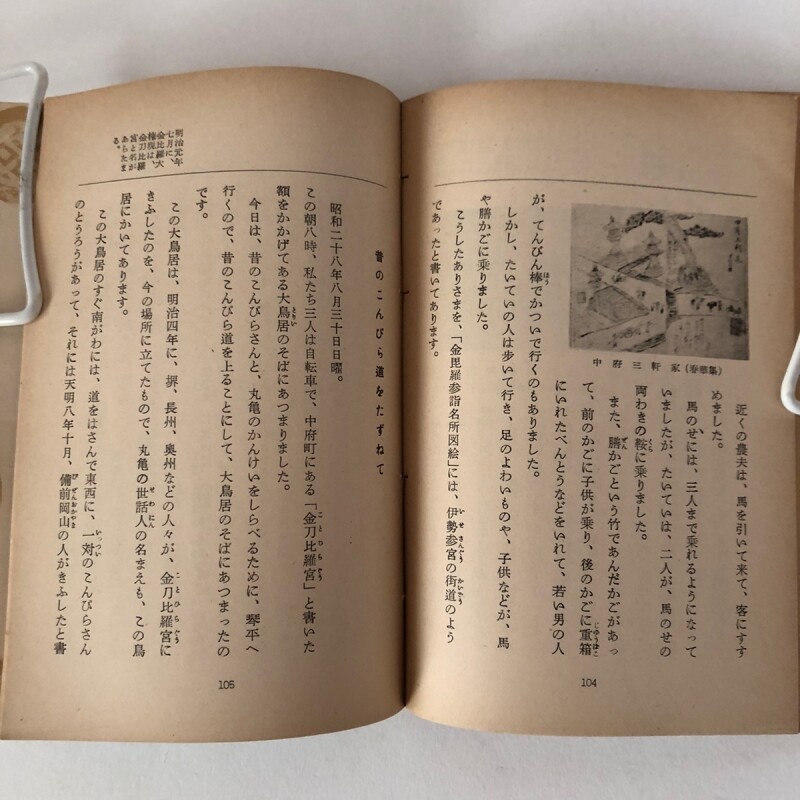 近くの農夫は、馬を引いて来て、客にすす
めました。
馬のせには、三人まで乗れるようになって
いましたが、たいていは、二人が、馬のせの
両わきの鞍に乗りました。
また、膳かごという竹であんだかごがあっ
て、前のかごに子供が乗り、後のかごに重箱
にいれたべんとうなどをいれて、若い男の人
中府三軒家
が、てんびん棒でかついで行くのもありました。
しかし、たいていの人は歩いて行き、足のよわいものや、子供などが、馬
や膳かごに乗りました。
こうしたありさまを、「金毘羅参詣名所図絵」には、伊勢参宮の街道のよう
であったと書いてあります。
104
昔のこんぴら道をたずねて
昭和二十八年八月三十日日曜。
この朝八時、私たち三人は自転車で、中府町にある「金刀比羅宮」と書いた
額をかかげてある大鳥居のそばにあつまりました。
今日は、昔のこんぴらさんと、丸亀のかんけいをしらべるために、琴平へ
行くので、昔のこんぴら道を上ることにして、大鳥居のそばにあつまったの
です。
この大鳥居は、明治四年に、堺、長州、奥州などの人々が、金刀比羅宮に
きふしたのを、今の場所に立てたもので、丸亀の世話人の名まえも、この鳥
居にかいてあります。
この大鳥居のすぐ南がわには、道をはさんで東西に、一対のこんぴらさん
のとうろうがあって、それには天明八年十月、備前岡山の人がきふしたと書
明治元年
七月に、
金比羅大
権現は、
金刀比羅
宮と名が
あらたま
る。
105